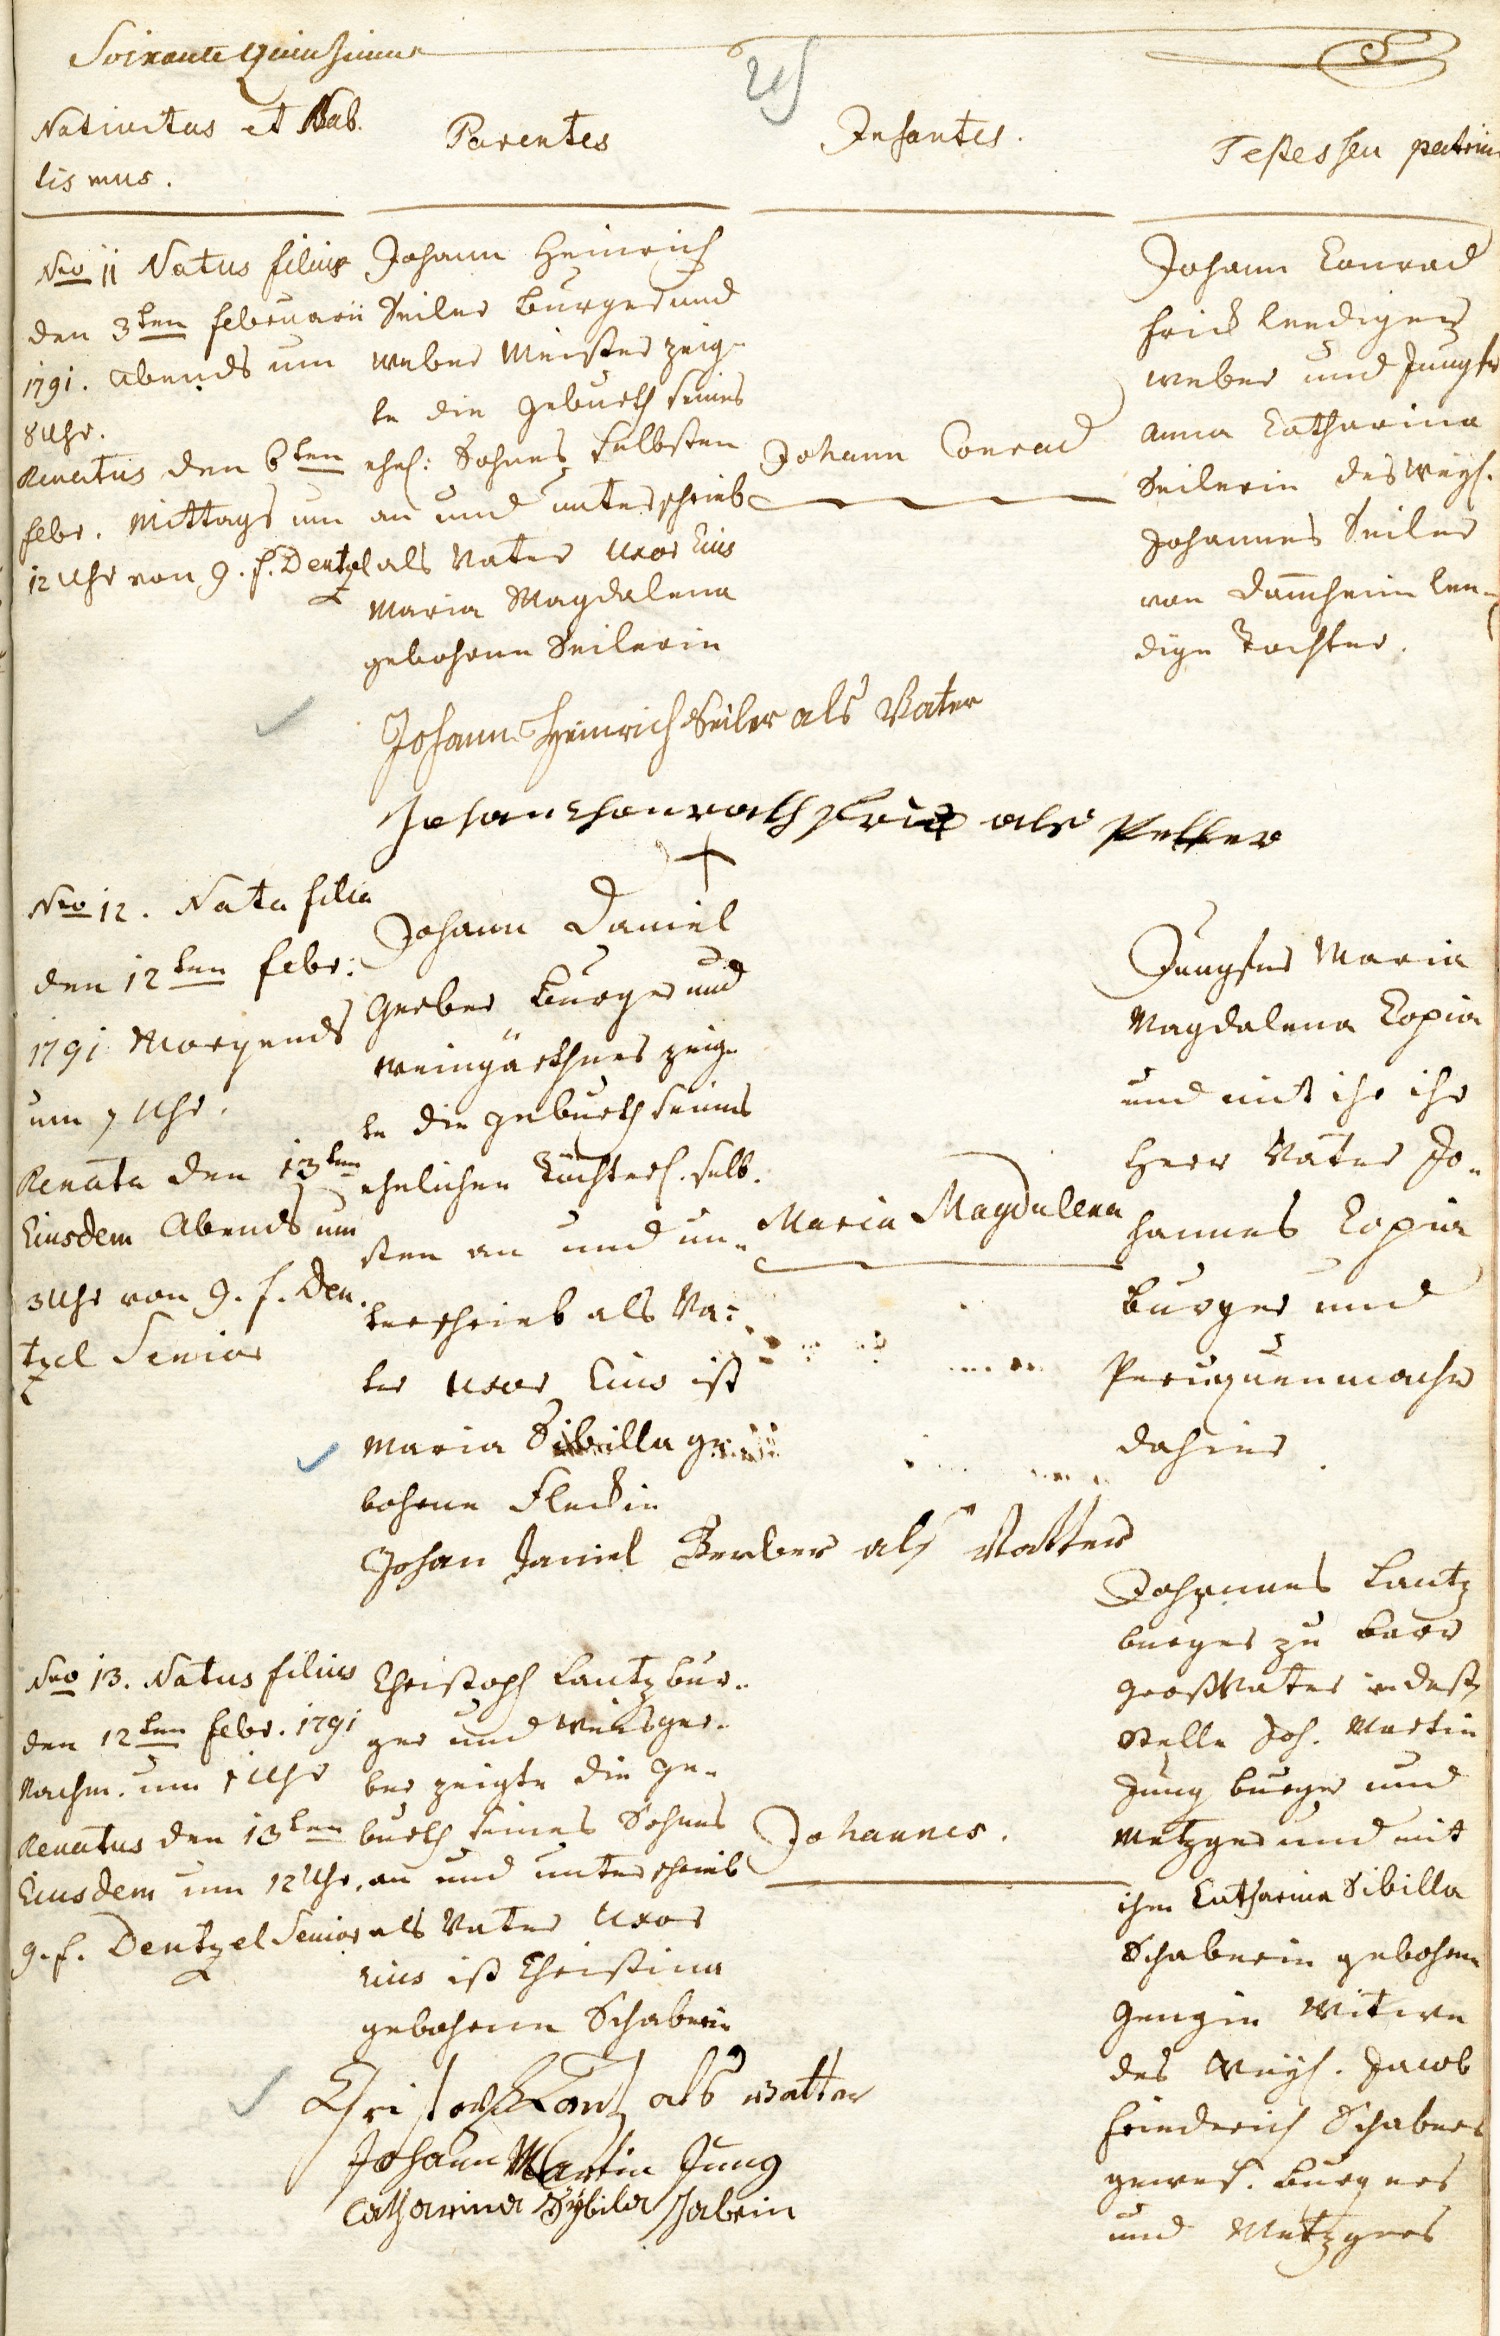 Soixante Quinsieme
215
Nativitas et Bab.
tismus.
Parentes
Infantes.
Testes seu patrini
Nro 11 Natus filius
den 3ten februarii
1791. abends um
8 Uhr.
Renatus den 6ten
febr. Mittags um
12 Uhr von G. f. Dentzel
Johann Heinrich
Seiler burger und
weber Meister zeig-
te die geburth seines
ehel: Sohnes selbsten
an und unterschrieb
als Vater Uxor Eius
Maria Magdalena
gebohrne Seilerin
Johann Conrad
Johann Conrad
frick leediger
weber und Jungfr
Anna Catharina
Seilerin des weyl.
Johannes Seiler
von Dam̄heim lee-
dige Tochter.
Johann Heinrich Seiler als Vater
Johan Chonrath frick als Petter
Nro 12. Nata filia
den 12ten febr:
1791 Morgends
um 7 Uhr.
Renata den 13ten
Eiusdem Abends um
3 Uhr von G. f. Den.
tzel Senior
Johann Daniel
Gerber burger und
weingärthner zeig-
te die geburth seines
ehelichen Töchterl. selb.
sten an und un-
terschrieb als Va-
ter Uxor Eius ist
Maria Sibilla ge
bohrne Fleckin
Maria Magdalena
Jungfer Maria
Magdalena Copia
und mit ihr ihr
Herr Vater Jo-
hannes Copia
burger und
Peruquenmacher
dahier
Johan Daniel Gerber als Vatter
Nro 13. Natus filius
den 12ten febr. 1791
Nachm. um 1 Uhr
Renatus den 13ten
Eiusdem um 12 Uhr.
G. f. Dentzel Senior
Christoph Lantz bur-
ger und weisger-
ber zeigte die ge-
burth seines Sohnes
an und unterschrieb
als Vater Uxor
eius ist Christina
gebohrne Schaberin
Johannes.
Johannes Lantz
burger zu barr
Grosvater in deßen
Stelle Joh. Martin
Jung burger und
Metzger und mit
ihm Catharina Sibilla
Schaberin gebohrne
Gengin Witwe
des weyl. Jacob
friederich Schabers
gewes. burgers
und Metzgers
Christoph Lantz als vatter
Johann Martin Jung
Catharina Sybila schabrin